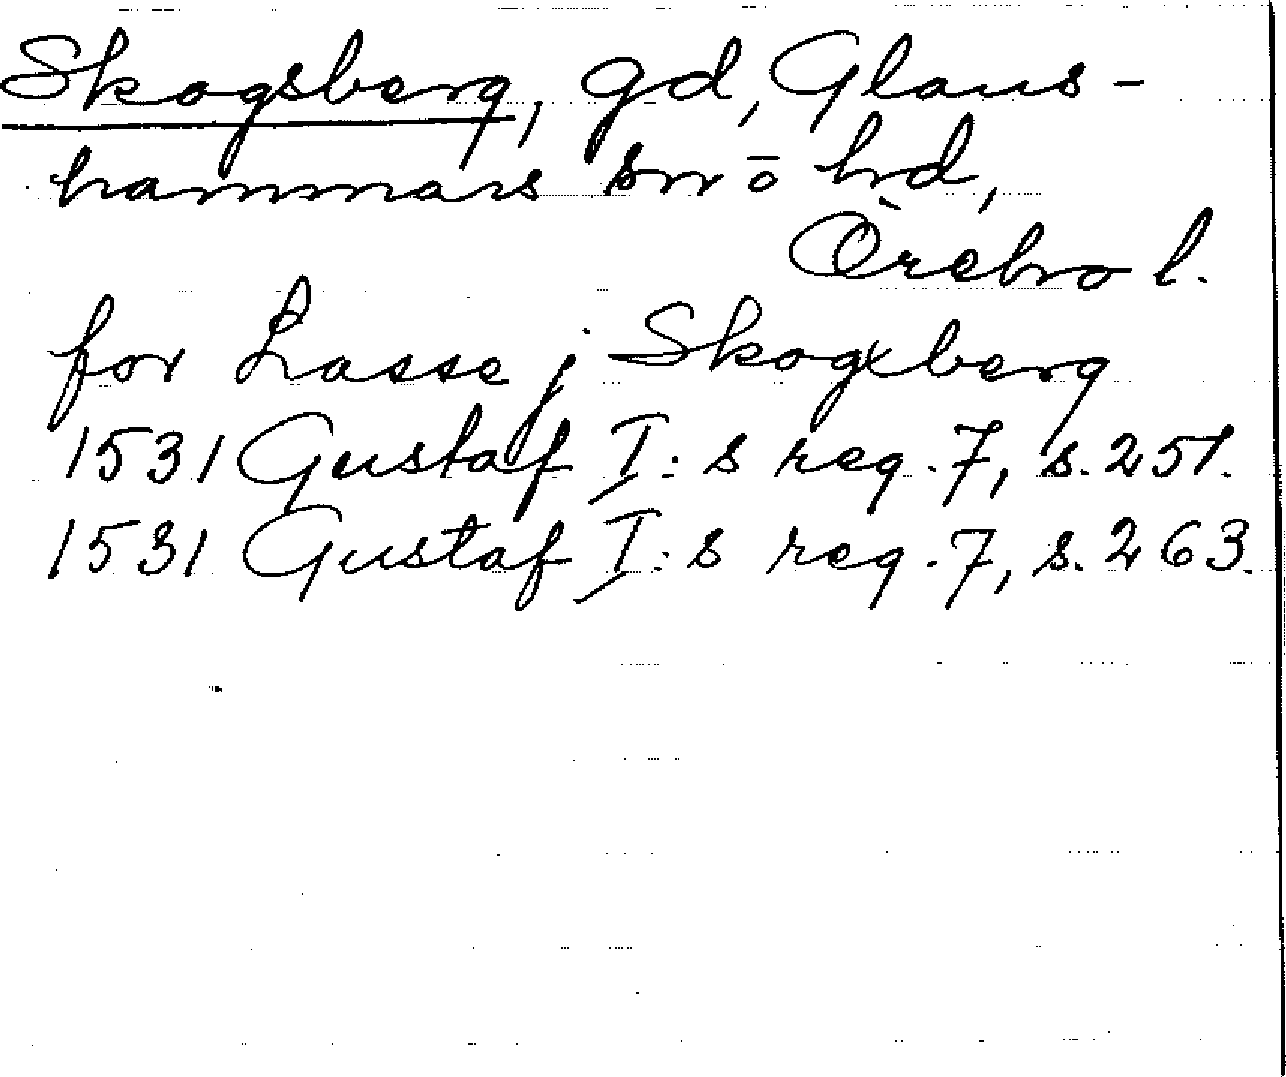 Skogsberg, gd, Glans-
hammars sn o hd,
Örebro l.
for Lasse j Skogxberg
1531 Gustaf I:s reg. 7, s. 251.
1531 Gustaf I:s reg. 7, s. 263.